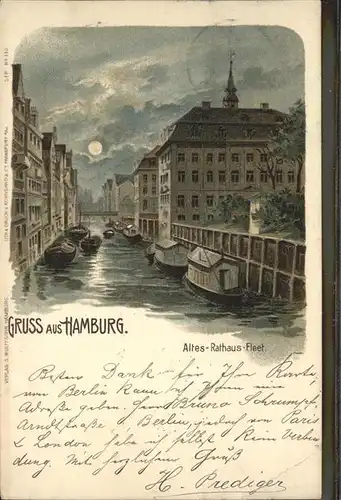 GRUSS AUS HAMBURG.
Altes-Rathaus-Fleet.
Besten Dank für Ihre Karte,
von Berlin kann ich Ihnen nur
Adreße geben. Herrn Bruno Schrumpf,
Arndtstraße Berlin, jedoch von Paris
& London habe ich selbst keine Verbin
dung. Mit herzlichem Gruß
H. Prediger